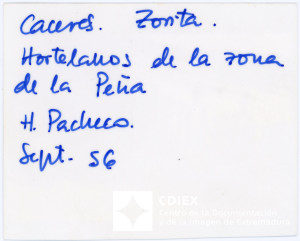 Caceres. Zorita.
Hortelanos de la zona
de la Peña
H. Pacheco.
Sept. 56
CDIEX